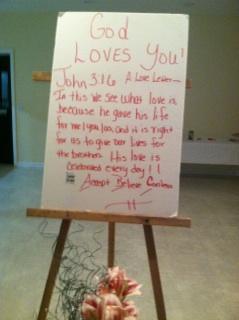 God
LOVES YOU!
John 3:16 A Love Letter—
In this we see what love is,
because he gave his life
for me/you too, and it is right
for us to give our lives for
the brothers. His love is
celebrated every day!!
Accept Believe Confess